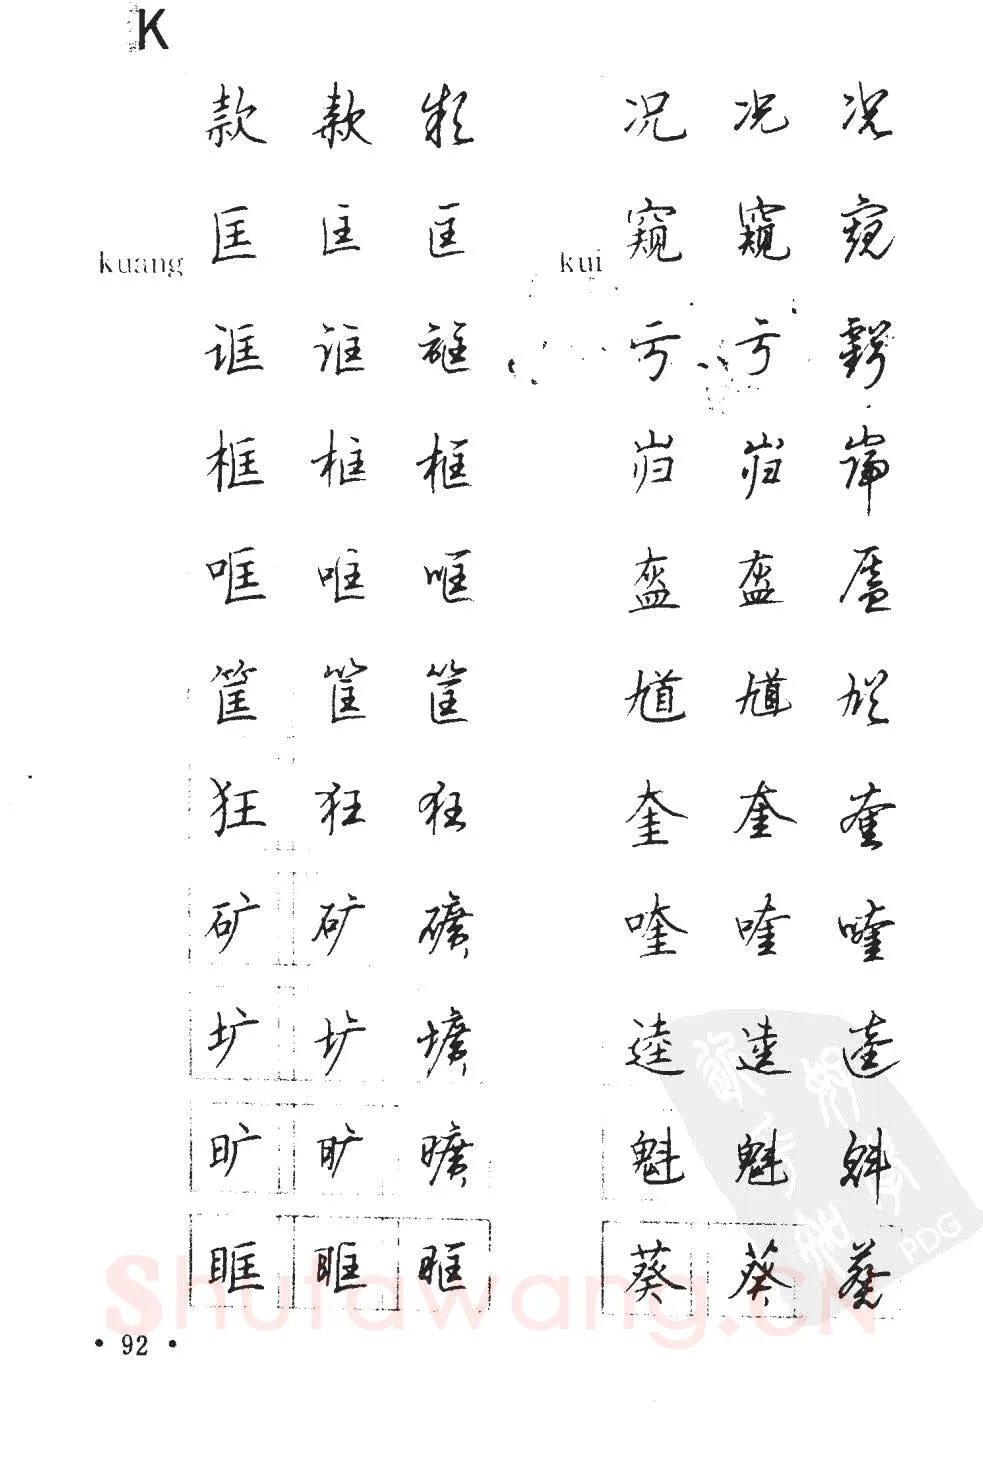 K
款 款 款
kuang 匡 匡 匡
诓 诓 誆
框 框 框
哐 哐 哐
筐 筐 筐
狂 狂 狂
矿 矿 礦
圹 圹 壙
旷 旷 曠
眶 眶 眶
况 况 况
kui 窥 窥 窥
亏 亏 虧
岿 岿 巋
盔 盔 盔
馗 馗 馗
奎 奎 奎
喹 喹 喹
逵 逵 逵
魁 魁 魁
葵 葵 葵
• 92 •
Shufawang.CN
PDG